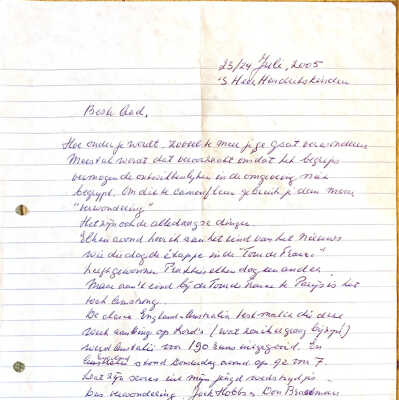 23/24 Juli, 2005
'S Heer Hendrikskinderen
Beste Aad,
Hoe ouder je wordt, zoveel te meer je je gaat verwonderen
Meestal wordt dat veroorzaakt omdat het begrips
vermogen de ontwikkelingen in de omgeving niet
begrijpt. Om die te camoufleren gebruik je dan maar
"verwondering"
Het zijn ook de alledaagse dingen.
Elke avond hoor ik aan het eind van het nieuws
wie die dag de etappe in de "Tour de France"
heeft gewonnen. Praktisch elke dag een ander.
Maar aan 't eind bij de Tour de France te Parijs is het
toch Armstrong.
De eerste England-Australia test matche die deze
week aan ging op Lord's (wat zou ik er graag bij zijn)
werd Australië voor 190 runs uitgegooid. En
England stond Donderdag avond op 92 voor 7.
Dat zijn scores uit mijn jeugd wedstrijdjes.
Das verwondering. Jack Hobbs & Don Bradman